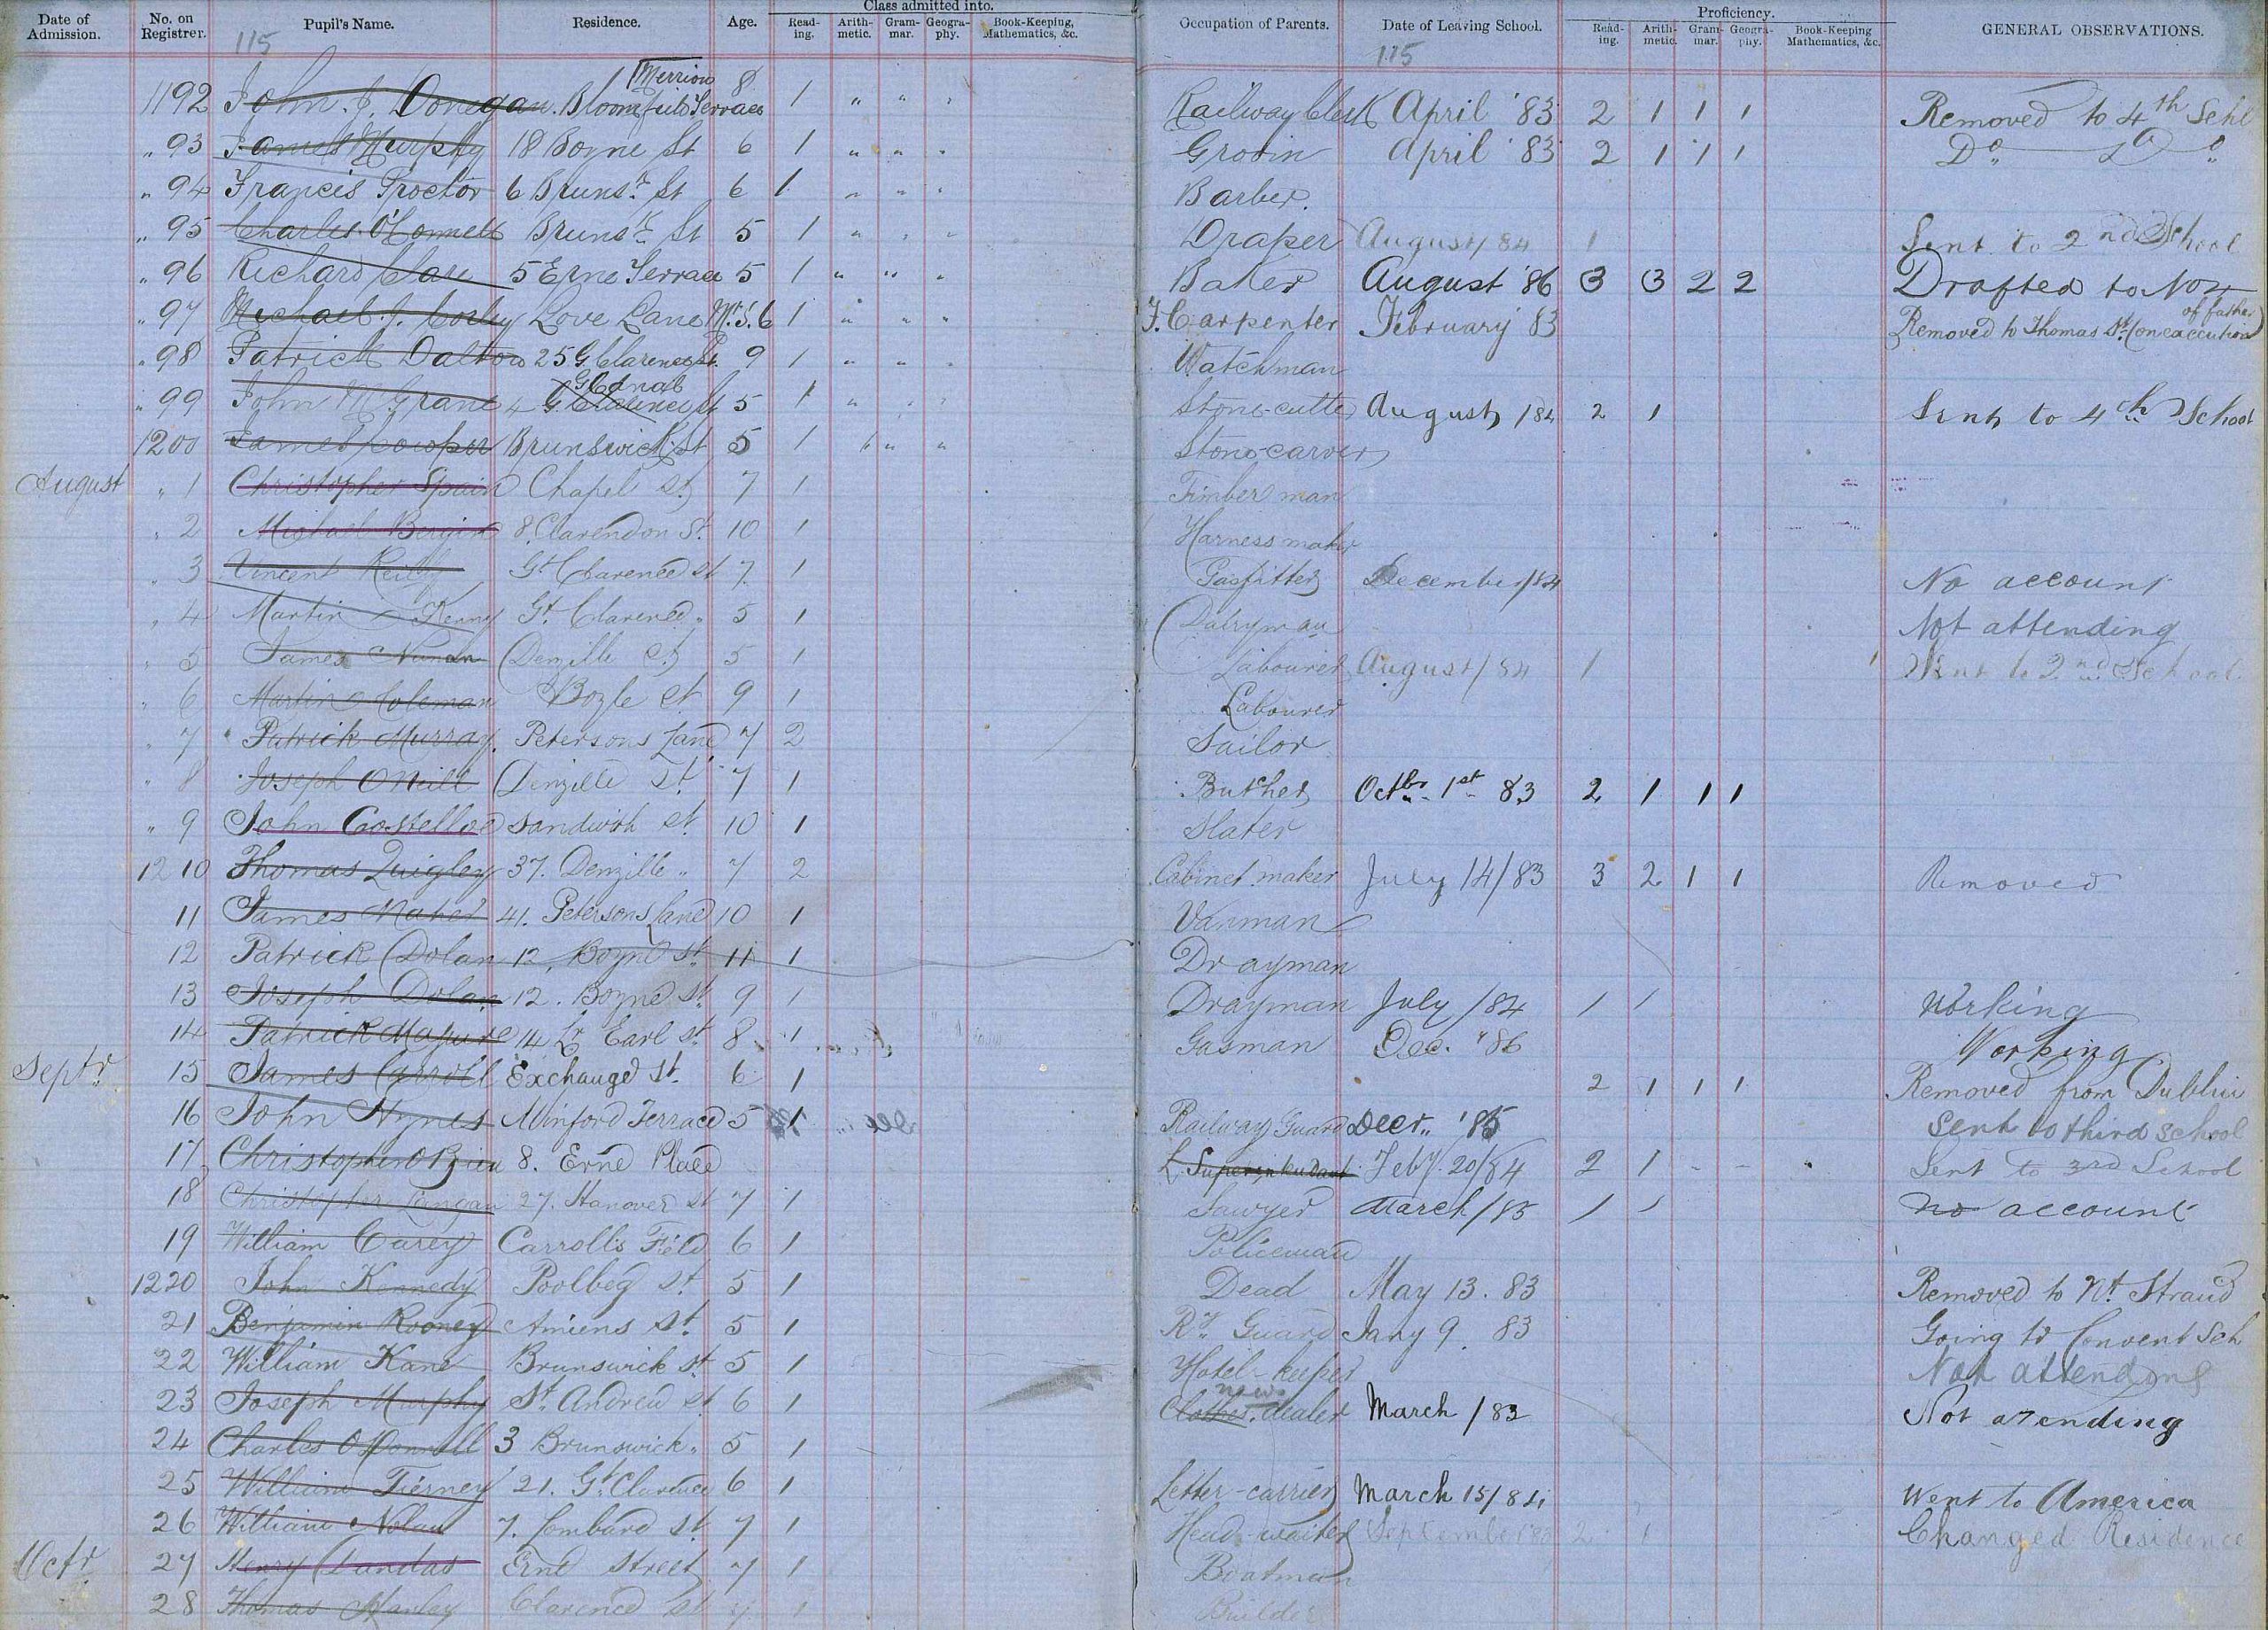 Date of Admission. No. on Registrer. Pupil's Name. Residence. Age. Class admitted into. Read-ing. Arith-metic. Gram-mar. Geogra-phy. Book-Keeping, Mathematics, &c. Occupation of Parents. Date of Leaving School. Proficiency. Read-ing. Arith-metic. Gram-mar. Geogra-phy. Book-Keeping Mathematics, &c. GENERAL OBSERVATIONS.
115 115
1192 John J. Donegan. Bloomfield Terrace Merrion 8 1 " " " Railway Clerk April '83 2 1 1 1 Removed to 4th Schl
" 93 James Murphy 18 Boyne St 6 1 " " " April '83 2 1 1 1 Do Do
" 94 Francis Proctor 6 Brunsk. St 6 1 " " " Barber.
" 95 Charles O'Connell Brunsk. St 5 1 " " " Draper August/84 1 Sent to 2nd School
" 96 Richard 5 Erne Terrace 5 1 " " " Baker August '86 3 3 2 2 Drafted to No 4
" 97 Michael J. Corley Love Lane Mt. S. 6 1 " " " F. Carpenter February 83 Removed to Thomas St. (on execution of father)
" 98 Patrick Dalton 25 G. Clarence St. 9 1 " " " Watchman
" 99 John McGrane 4 G. Clarence St G Canal 5 1 " " " Stone-cutter August /84 2 1 Sent to 4th School
1200 James Cowper Brunswick St 5 1 " " " Stone-carver
August " 1 Christopher Spain Chapel St 7 1 Timber man
" 2 Michael Bergin 8. Clarendon St. 10 1 Harness maker
" 3 Vincent Reilly Gt Clarence St 7. 1 Gasfitter December/84 No account
" 4 Martin Kenny Gt. Clarence " 5 1 Dairyman Not attending
" 5 James Nunan Denzille St 5 1 Labourer August/84 1 Sent to 2nd School
" 6 Martin Coleman Boyle St 9 1 Labourer
" 7 Patrick Murray. Petersons Lane 7 2 Sailor
" 8 Joseph O'Neill Denzille St. 7 1 Butcher Octbr. 1st 83 2 1 1 1
" 9 John Costelloe Sandwith St. 10 1 Slater
1210 Thomas Quigley 37. Denzille " 7 2 Cabinet maker July 14/83 3 2 1 1 Removed
11 James Maher 41. Petersons Lane 10 1 Vanman
12 Patrick Dolan 12. Boyne St. 11 1 Drayman
13 Joseph Dolan 12. Boyne St. 9 1 Drayman July /84 1 1 Working
14 Patrick Maguire 14 Lr Earl St. 8 1 Gasman Dec. '86 Working
Septr. 15 James Carroll Exchange St. 6 1 2 1 1 1 Removed from Dublin
16 John Hynes Minford Terrace 5 1 Railway Guard Decr. '85 Sent to third School
17 Christopher O'Brien 8. Erne Place L. Superintendant Feby. 20/84 2 1 - - Sent to 3rd School
18 Christopher Langan 27. Hanover St 7 1 Sawyer March /85 1 1 no account
19 William Carey Carroll's Field 6 1 Policeman
1220 John Kennedy Poolbeg St. 5 1 Dead May 13. 83 Removed to Nt. Strand
21 Benjamin Rooney Amiens St. 5 1 Ry. Guard Jany 9. 83 Going to Convent Sch
22 William Kane Brunswick St. 5 1 Hotel-keeper Not attending
23 Joseph Murphy St. Andrew St 6 1 Clothes new dealer March /83 Not atending
24 Charles O'Donnell 3 Brunswick " 5 1
25 William Tierney 21. Gt. Clarence 6 1 Letter-carrier March 15/84 Went to America
26 William Nolan 7. Lombard St. 7 1 Head-waiter September 2 1 Changed Residence
Octr. 27 Henry Erne Street 7 1 Boatman
28 Thomas Hanley Clarence St 7 1 Builder